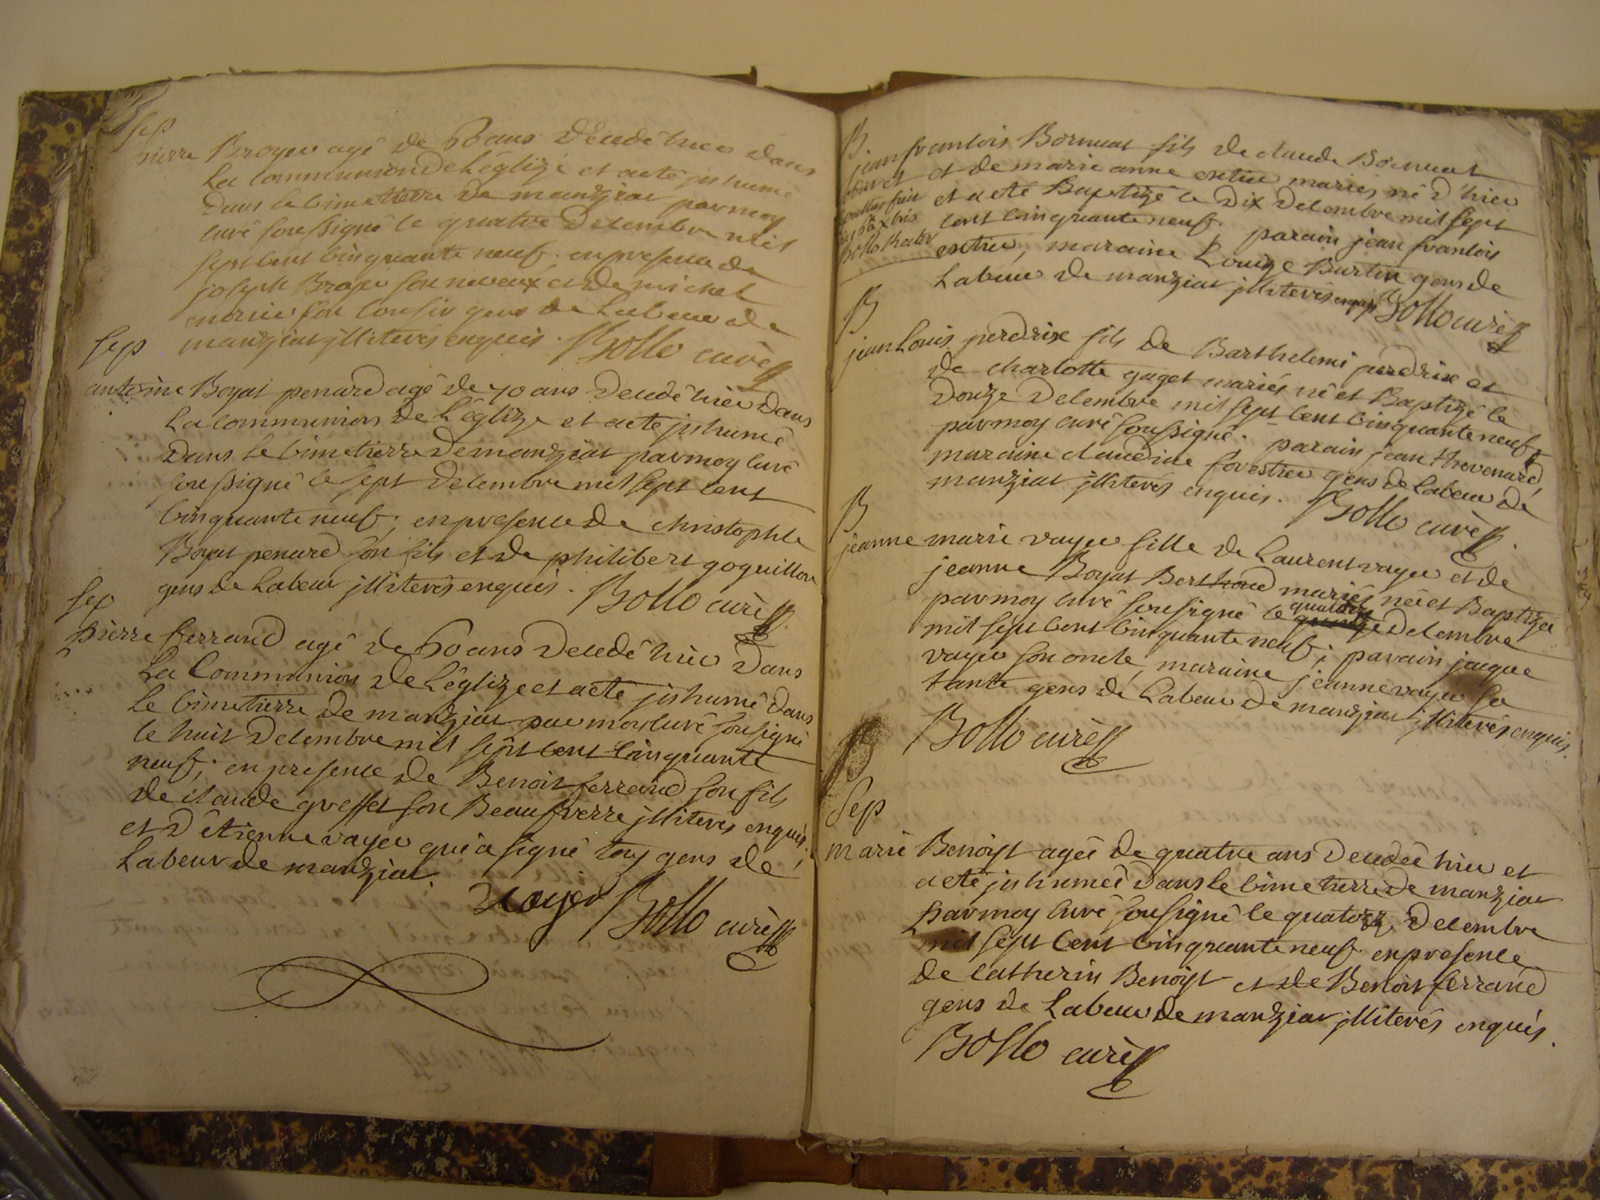 sep
pierre Broyer agé de 60 ans décédé hier dans
la communion de l'églize et a eté jnhumé
dans le cimetierre de manziat par moy
curé soussigné le quatre décembre mil
sept cent cinquante neuf. en presence de
joseph son neveux et de michel
son cousin gens de labeur de
manziat jlliterés enquis. Bollo curé
sep
antoine Boyat penard agé de 70 ans décédé hier dans
la communion de l'églize et a eté jnhumé
dans le cimetierre de manziat par moy curé
soussigné le sept décembre mil sept cent
cinquante neuf; en presence de christophle
Boyat penard son fils et de philibert goguillon
gens de labeur jlliterés enquis. Bollo curé
sep
pierre ferrand agé de 60 ans décédé hier dans
la communion de l'églize et a eté jnhumé dans
le cimetierre de manziat par moy curé soussigné
le huit décembre mil sept cent cinquante
neuf; en presence de Benoit ferrand son fils
de claude son Beaufrerre jlliterés enquis,
et d'étienne vayer qui a signé tous gens de
labeur de manziat.
Bollo curé
B
jean francois Bornuat fils de claude Bornuat
et de marie anne extier mariés né d'hier
et a eté Baptizé le dix décembre mil sept
cent cinquante neuf. parain jean francois
extier, maraine Louize Burtin gens de
labeur de manziat jlliterés enquis Bollo curé
B
jean louis perdrix fils de Barthelemi perdrix et
de charlotte guget mariés né et Baptizé le
douze décembre mil sept cent cinquante neuf
par moy curé soussigné. parain jean thevenard,
maraine claudine forestier gens de labeur de
manziat jlliterés enquis. Bollo curé
B
jeanne marie vayer fille de Laurent vayer et de
jeanne Boyat Berthoud mariés née et Baptizée
par moy curé soussigné le quatorze décembre
mil sept cent cinquante neuf; parain jacque
vayer son oncle, maraine jeanne vayer sa
tante gens de labeur de manziat jlliterés enquis.
Bollo curé
sep
marie Benoist agée de quatre ans décédée hier et
a eté jnhumée dans le cimetierre de manziat
par moy curé soussigné le quatorze décembre
mil sept cent cinquante neuf. en presence
de catherin Benoist et de Benoit ferrand
gens de labeur de manziat jlliterés enquis.
Bollo curé